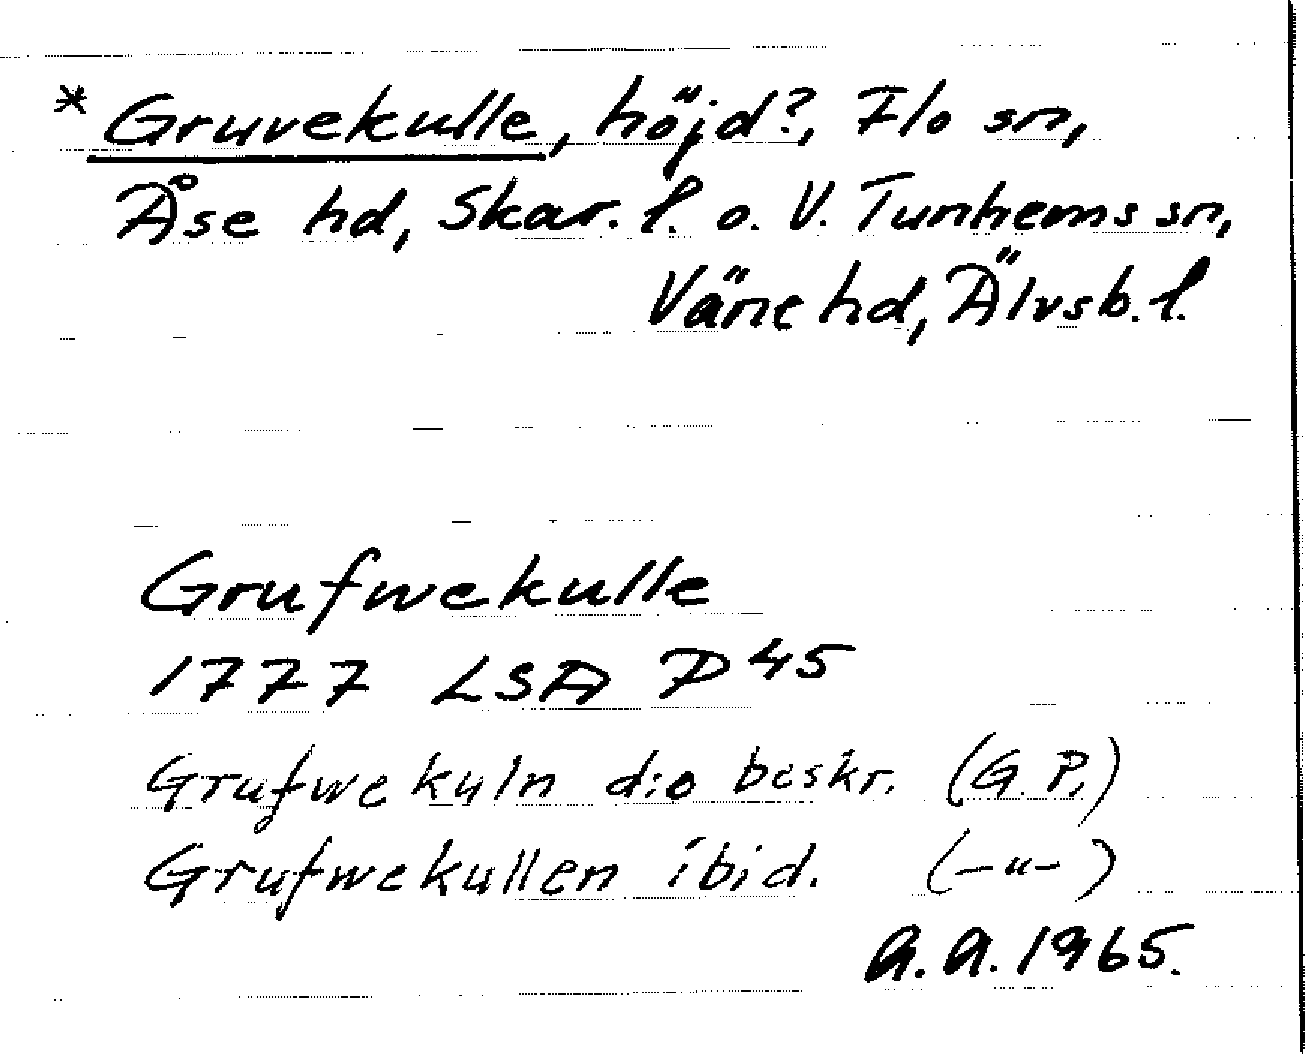 * Gruvekulle, höjd?, Flo sn,
Åse hd, Skar. l. o. V. Tunhems sn,
Väne hd, Älvsb. l.
Grufwekulle
1777 LSA P45
Grufwekuln d:o beskr. (G. P.)
Grufwekullen ibid. (-"-)
A.A. 1965.